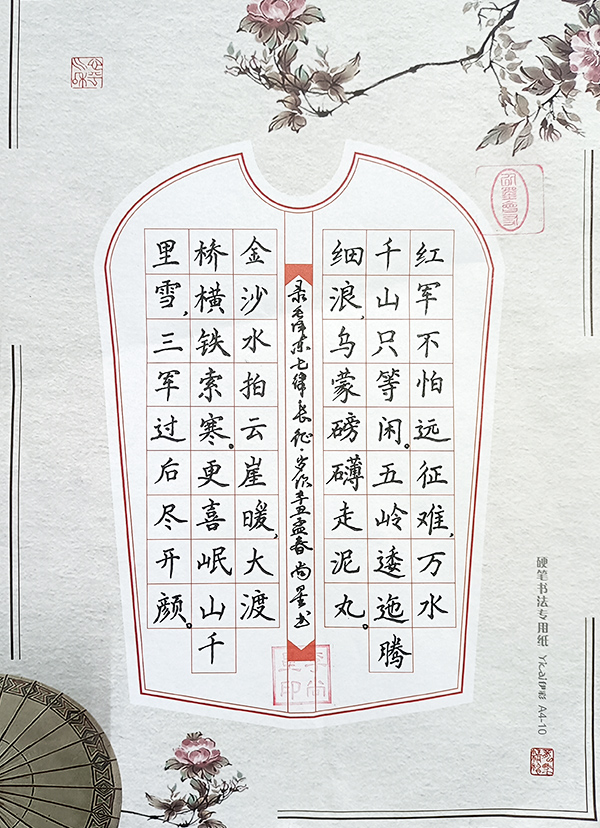 红军不怕远征难,万水
千山只等闲。五岭逶迤腾
细浪,乌蒙磅礴走泥丸。
录毛泽东七律·长征·岁次辛丑孟春尚书
金沙水拍云崖暖,大渡
桥横铁索寒。更喜岷山千
里雪,三军过后尽开颜。
硬笔书法专用纸 伊彩 A4-10